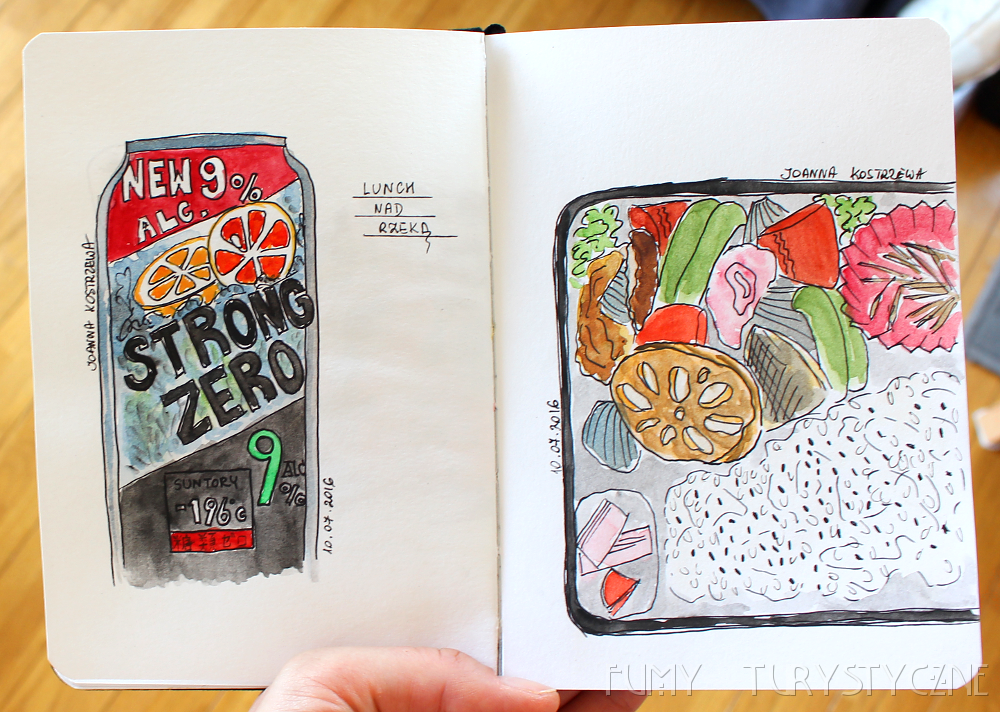 NEW 9%
ALC.
STRONG
ZERO
9 ALC
%
SUNTORY
-196°C
JOANNA KOSTRZEWA
10.07.2016
LUNCH
NAD
RZEKĄ
JOANNA KOSTRZEWA
10.07.2016
FUMY TURYSTYCZNE